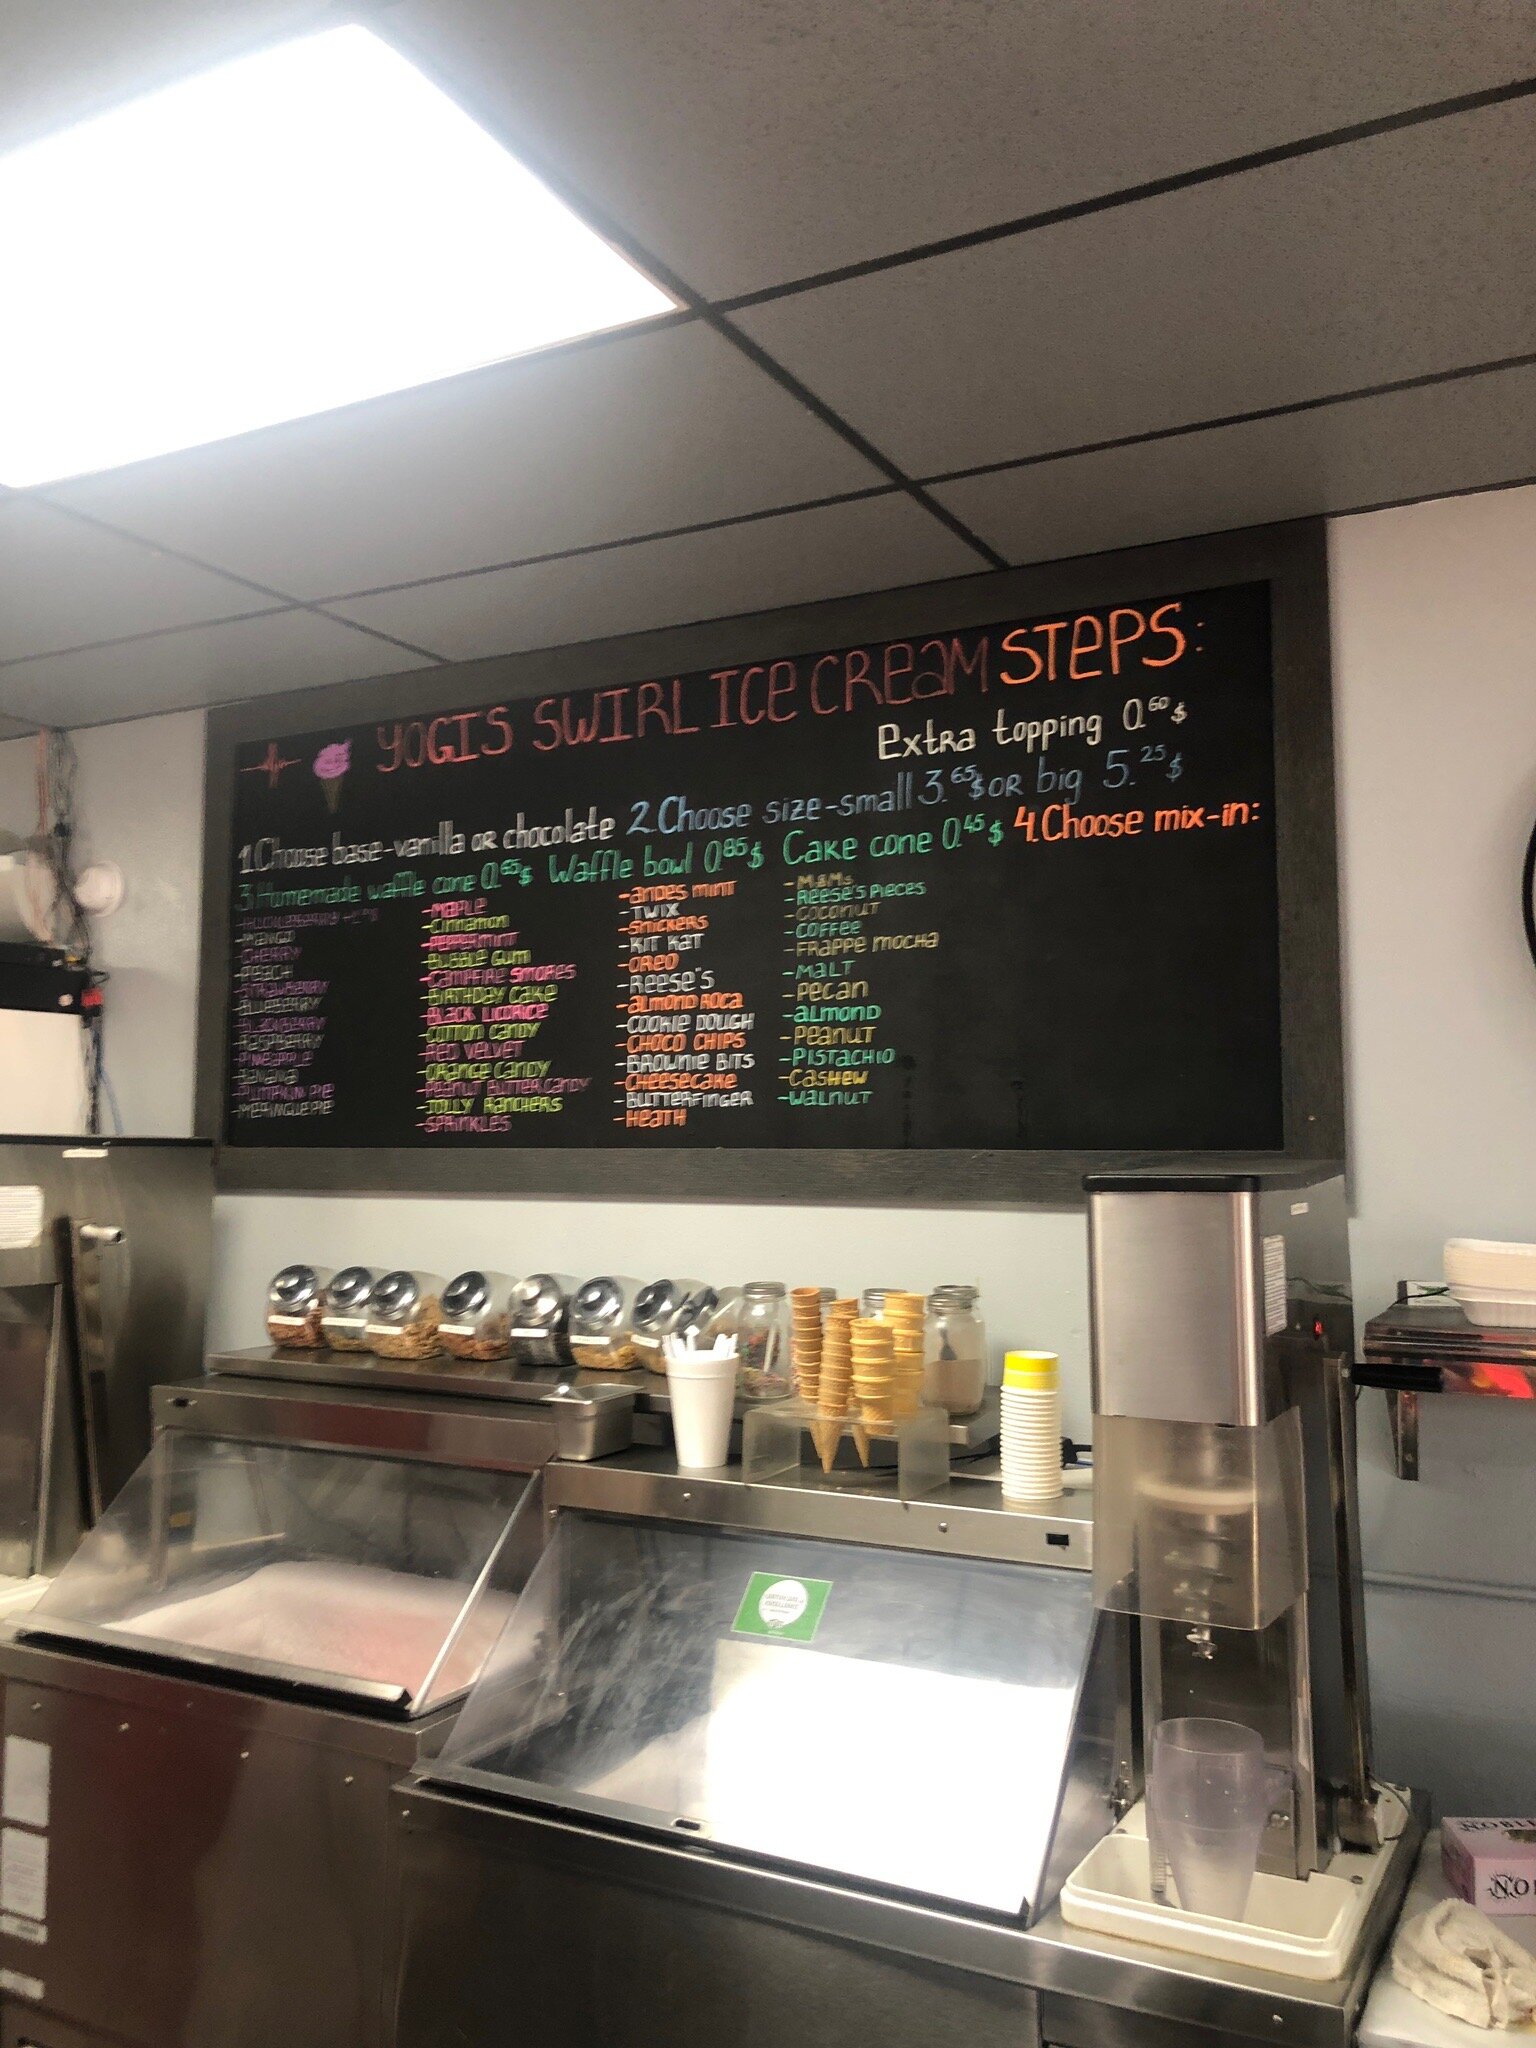 YOGIS SWIRL ICE CREAM STEPS:
Extra topping 0.60$
1.Choose base-vanilla or chocolate 2.Choose size-small 3.65$ or big 5.25$
3.Humemade waffle cone 0.65$ Waffle bowl 0.85$ Cake cone 0.45$ 4.Choose mix-in:
-MANGO
-CHERRY
-PEACH
-STRAWBERRY
-BLUEBERRY
-BLACKBERRY
-RASPBERRY
-PINEAPPLE
-BANANA
-PUMPKIN PIE
-MERINGUE PIE
-MAPLE
-CINNAMON
-PEPPERMINT
-BUBBLE GUM
-CAMPFIRE SMORES
-BIRTHDAY CAKE
-BLACK LICORICE
-COTTON CANDY
-RED VELVET
-ORANGE CANDY
-PEANUT BUTTER CANDY
-JOLLY RANCHERS
-SPRINKLES
-ANDES MINT
-TWIX
-SNICKERS
-KIT KAT
-OREO
-REESE'S
-ALMOND ROCA
-COOKIE DOUGH
-CHOCO CHIPS
-BROWNIE BITS
-CHEESECAKE
-BUTTERFINGER
-HEATH
-M&Ms
-REESE'S PIECES
-COCONUT
-COFFEE
-FRAPPE MOCHA
-MALT
-PECAN
-ALMOND
-PEANUT
-PISTACHIO
-CASHEW
-WALNUT